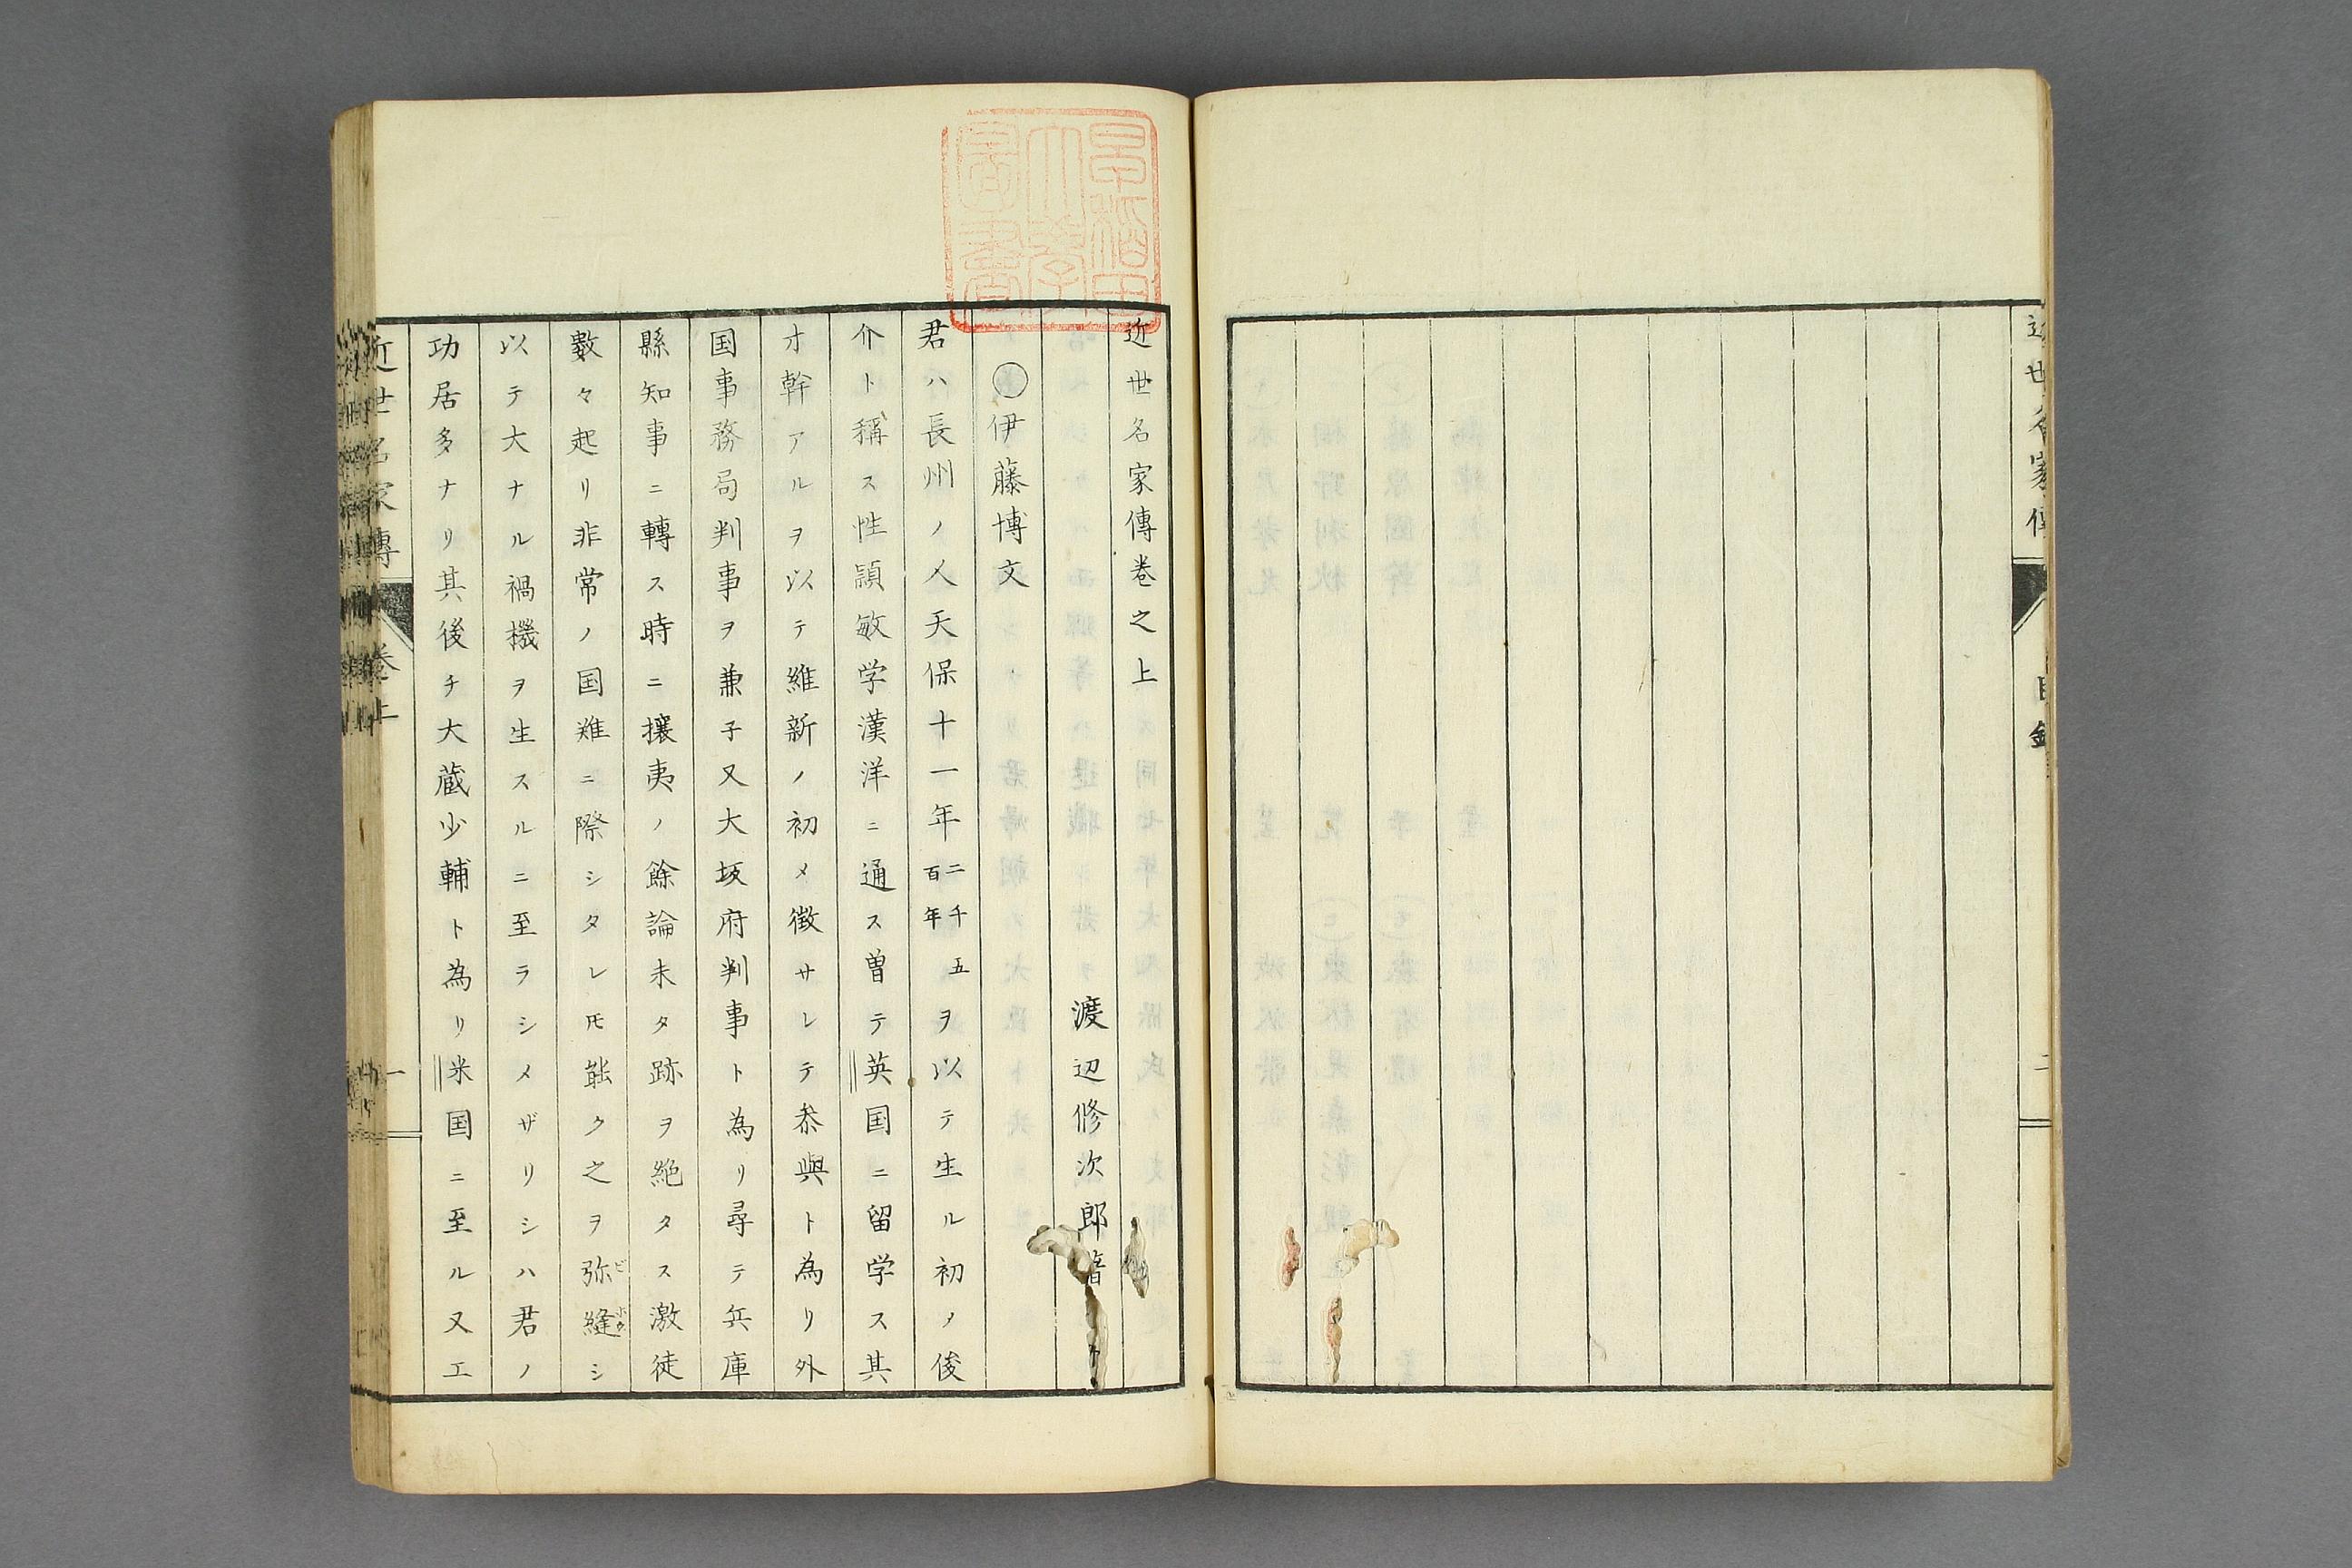 近世名家傳
目録
二
近世名家傳巻之上
渡辺修次郎著
○伊藤博文
君ハ長州ノ人天保十一年二千五百年ヲ以テ生ル初メ俊
介ト稱ス性頴敏学漢洋ニ通ス曽テ英国ニ留学ス其
才幹アルヲ以テ維新ノ初メ徴サレテ参與ト為リ外
国事務局判事ヲ兼子又大坂府判事ト為リ尋テ兵庫
縣知事ニ轉ス時ニ攘夷ノ餘論未タ跡ヲ絶タス激徒
數々起リ非常ノ国難ニ際シタレ𪜈能ク之ヲ弥縫シ
ビホウ
以テ大ナル禍機ヲ生スルニ至ラシメザリシハ君ノ
功居多ナリ其後チ大蔵少輔ト為リ米国ニ至ル又エ
近世名家傳
巻上
一
早稲田大学図書